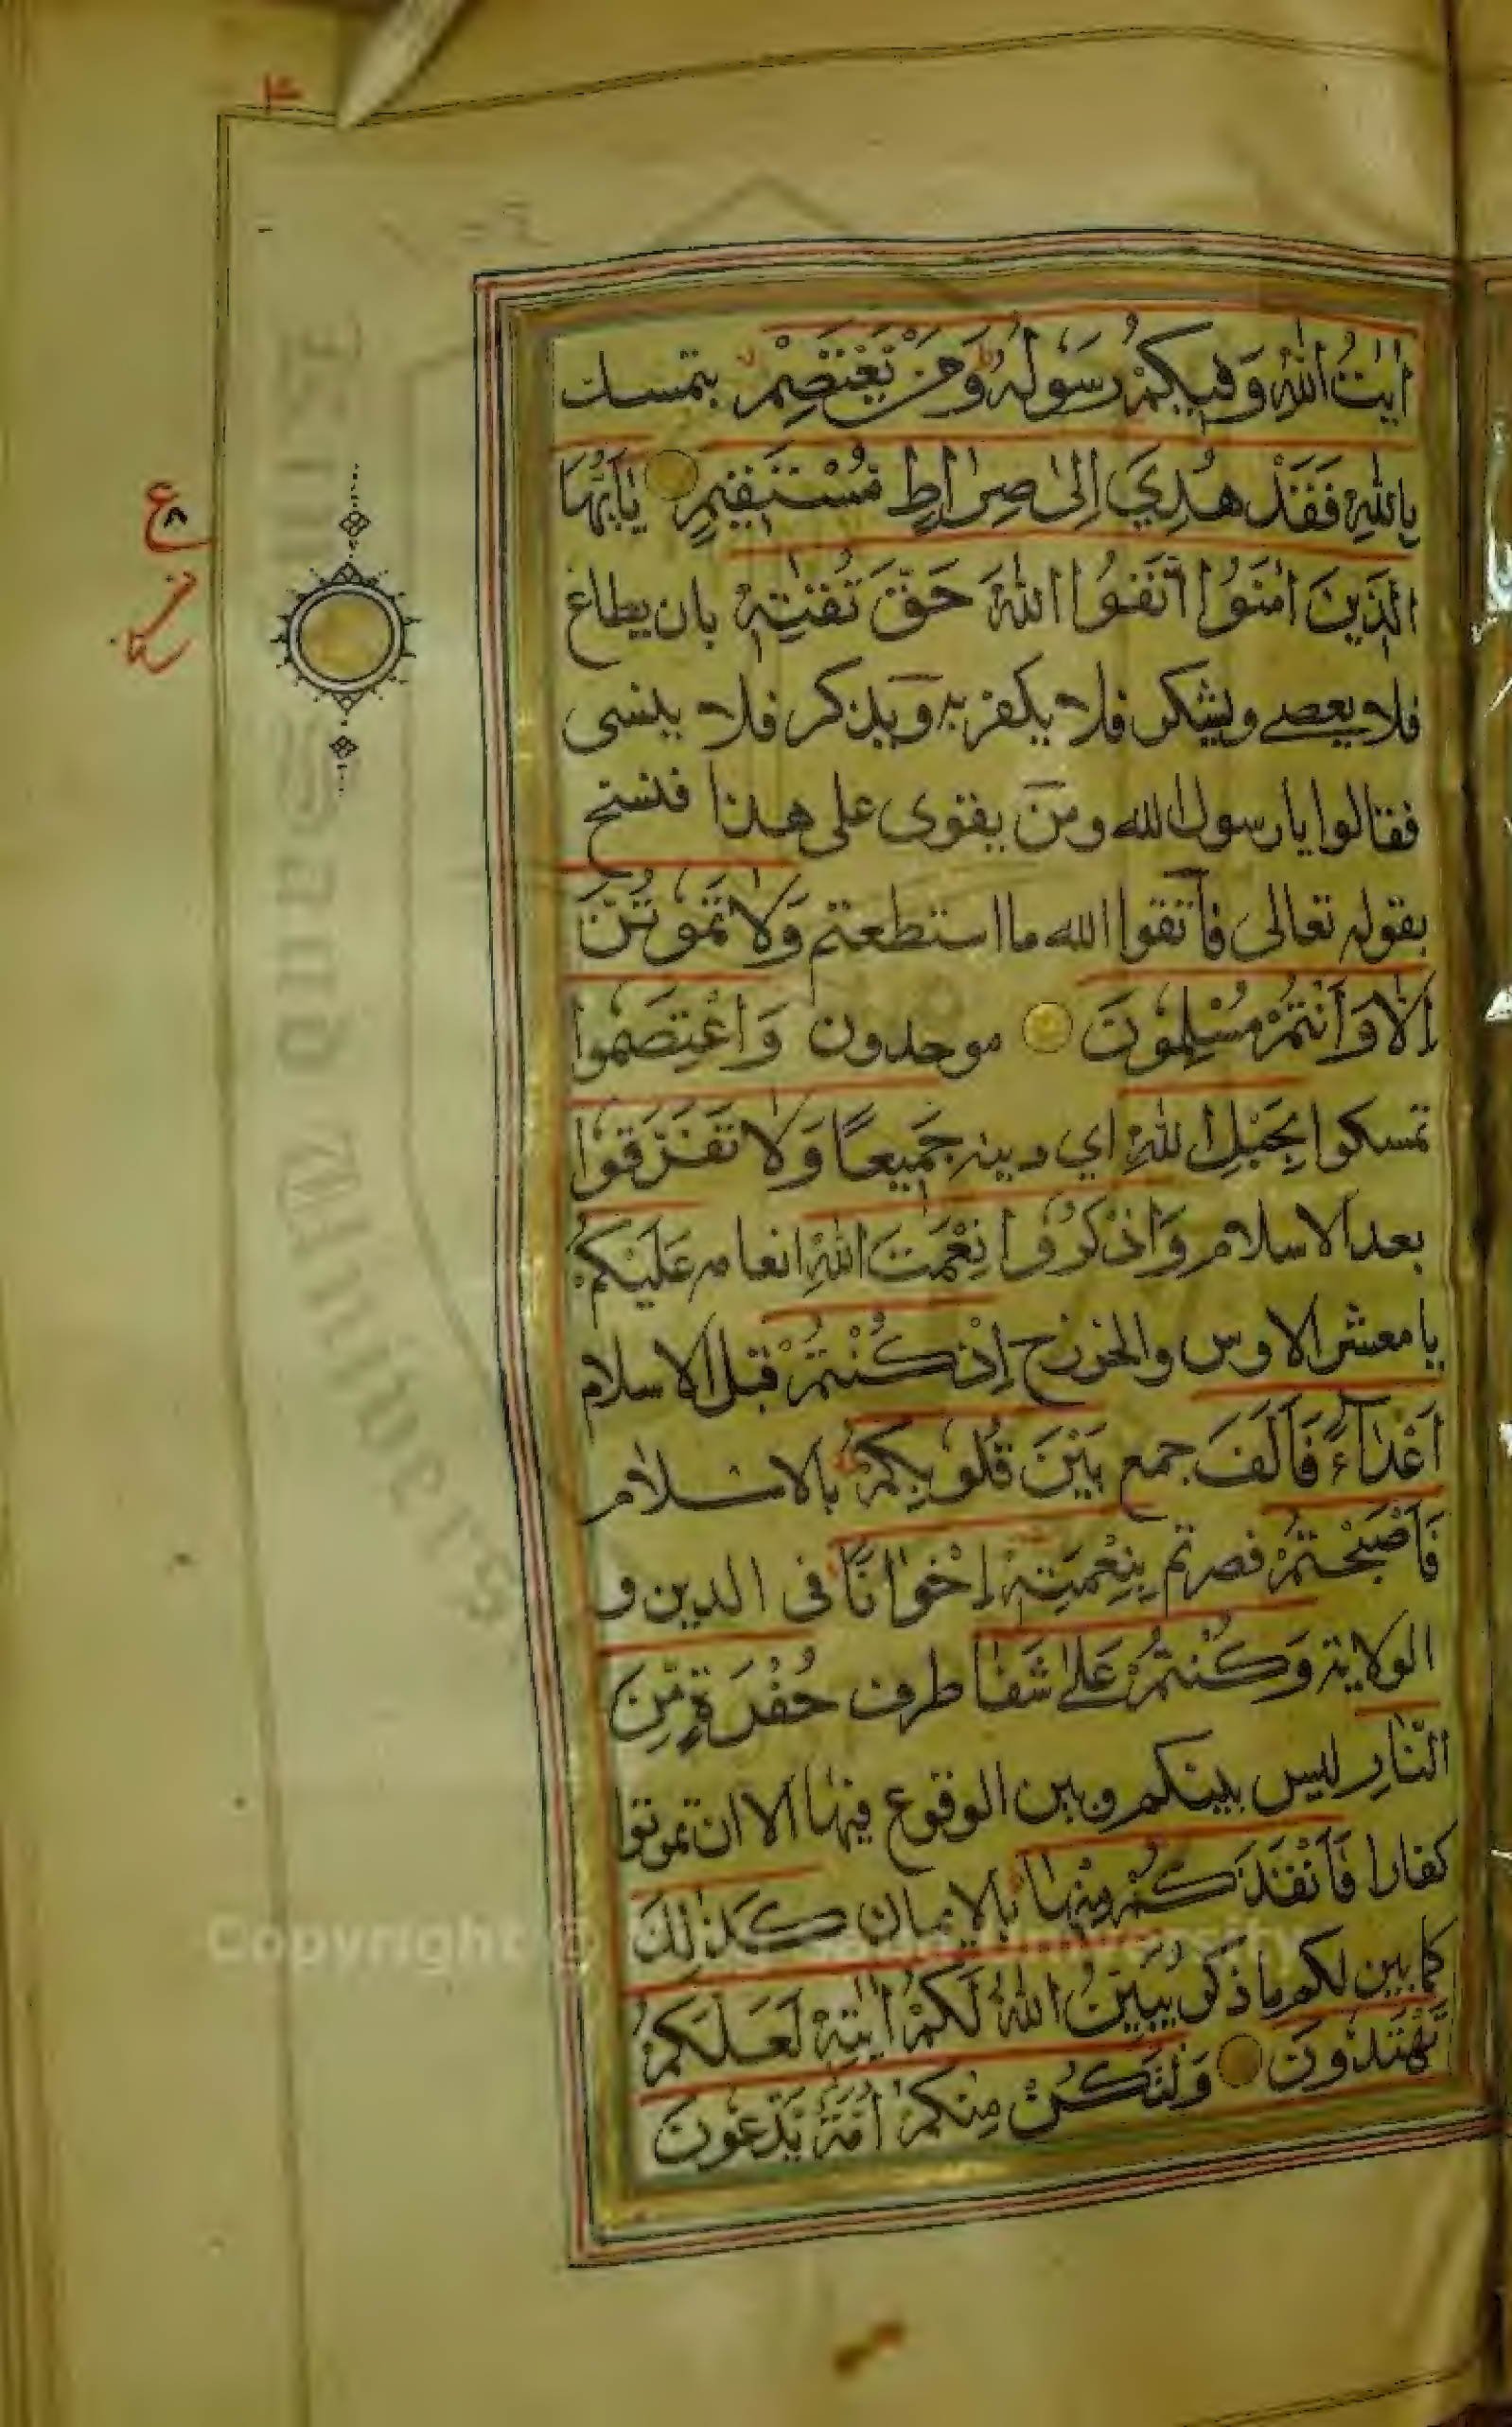 اٰيٰتُ اللّٰهِ وَفِيكُمْ رَسُولُهُ وَمَنْ يَعْتَصِمْ يتمسك
بِاللّٰهِ فَقَدْ هُدِيَ اِلٰى صِرَاطٍ مُسْتَقِيمٍ يٰاَيُّهَا
الَّذِينَ اٰمَنُوا اتَّقُوا اللّٰهَ حَقَّ تُقٰتِهٖ بان يطاع
فلا يعصى ويشكر فلا يكفر به ويذكر فلا ينسى
فقالوا يا رسول الله ومن يقوى على هذا فنسخ
بقوله تعالى فاتقوا الله ما استطعتم وَلَا تَمُوتُنَّ
اِلَّا وَاَنْتُمْ مُسْلِمُونَ موحدون وَاعْتَصِمُوا
تمسكوا بِحَبْلِ اللّٰهِ اي دينه جَمِيعًا وَلَا تَفَرَّقُوا
بعد الاسلام وَاذْكُرُوا نِعْمَتَ اللّٰهِ انعامه عَلَيْكُمْ
يا معشر الاوس والخزرج اِذْ كُنْتُمْ قبل الاسلام
اَعْدَاءً فَاَلَّفَ جمع بَيْنَ قُلُوبِكُمْ بالاسلام
فَاَصْبَحْتُمْ فصرتم بِنِعْمَتِهٖ اِخْوَانًا فى الدين و
الولاية وَكُنْتُمْ عَلٰى شَفَا طرف حُفْرَةٍ مِنَ
النَّارِ ليس بينكم وبين الوقوع فيها الا ان تموتوا
كفارا فَاَنْقَذَكُمْ مِنْهَا بالايمان كَذٰلِكَ
كما بين لكم ما ذكر يُبَيِّنُ اللّٰهُ لَكُمْ اٰيٰتِهٖ لَعَلَّكُمْ
تَهْتَدُونَ وَلْتَكُنْ مِنْكُمْ اُمَّةٌ يَدْعُونَ
ع
٨
King Saud University
Copyright © King Saud University